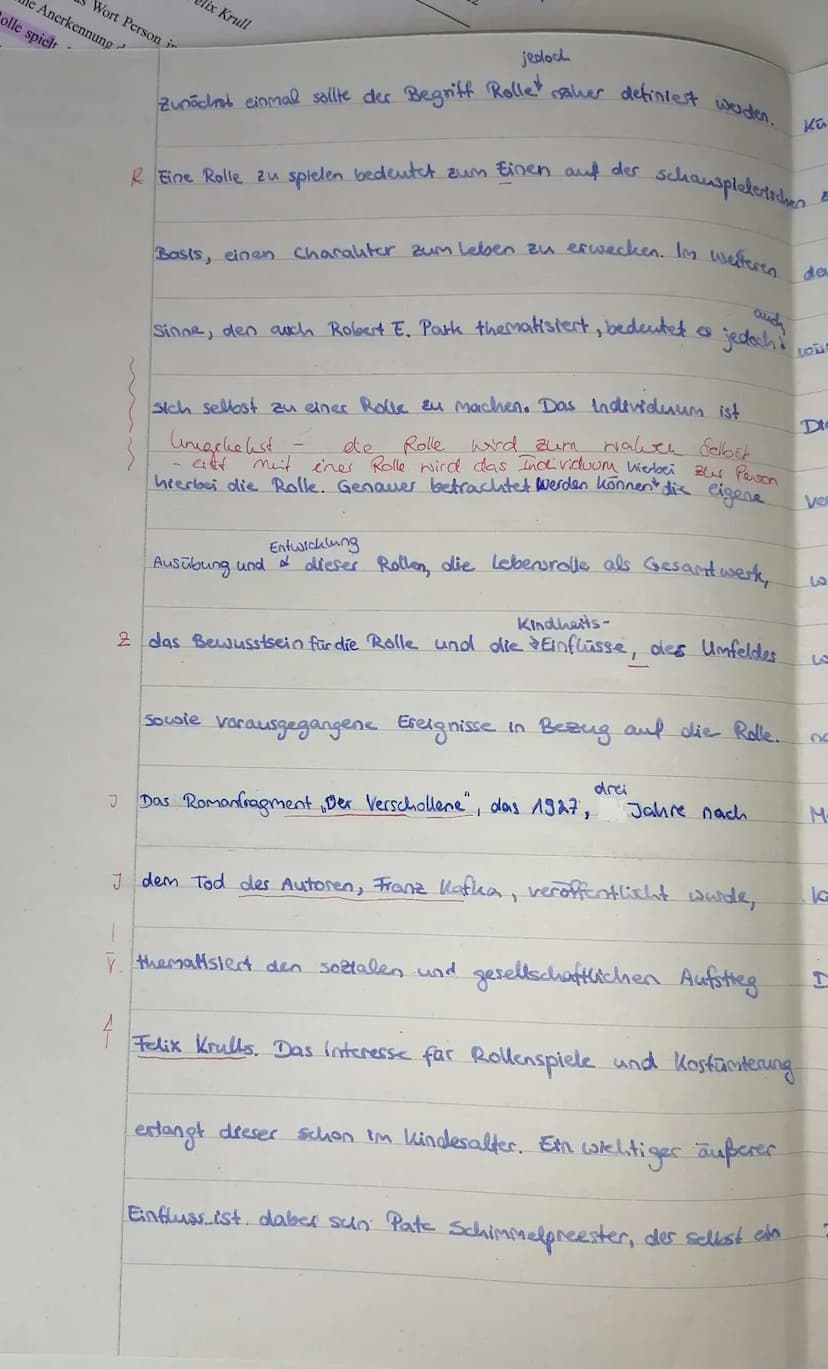 elix Krull
Wort Person
Anerkennung
olle spielt
jedoch
Zunächst einmal sollte der Begriff Rolle näher definiert werden.
R Eine Rolle zu spielen bedeutet zum Einen auf der schauspielerischen
Basis, einen Charakter zum Leben zu erwecken. Im weiteren
auch
Sinne, den auch Robert E. Park thematisiert, bedeutet es jedoch
sich selbst zu einer Rolle zu machen. Das Individuum ist
Umgekehrt - die Rolle wird zum wahren Selbst
- mit einer Rolle wird das Individuum hierbei zur Person
hierbei die Rolle. Genauer betrachtet werden können die eigene
Entwicklung
Ausübung und dieser Rollen, die Lebensrolle als Gesamtwerk,
Kindheits-
Z das Bewusstsein für die Rolle und die Einflüsse, des Umfeldes
sowie vorausgegangene Ereignisse in Bezug auf die Rolle.
drei
J Das Romanfragment „Der Verschollene“, das 1927, Jahre nach
J dem Tod des Autoren, Franz Kafka, veröffentlicht wurde,
thematisiert den sozialen und gesellschaftlichen Aufstieg
Felix Krulls. Das Interesse für Rollenspiele und Kostümierung
erlangt dieser schon im Kindesalter. Ein wichtiger äußerer
Einfluss ist dabei sein Pate Schimmelpreester, der selbst ein